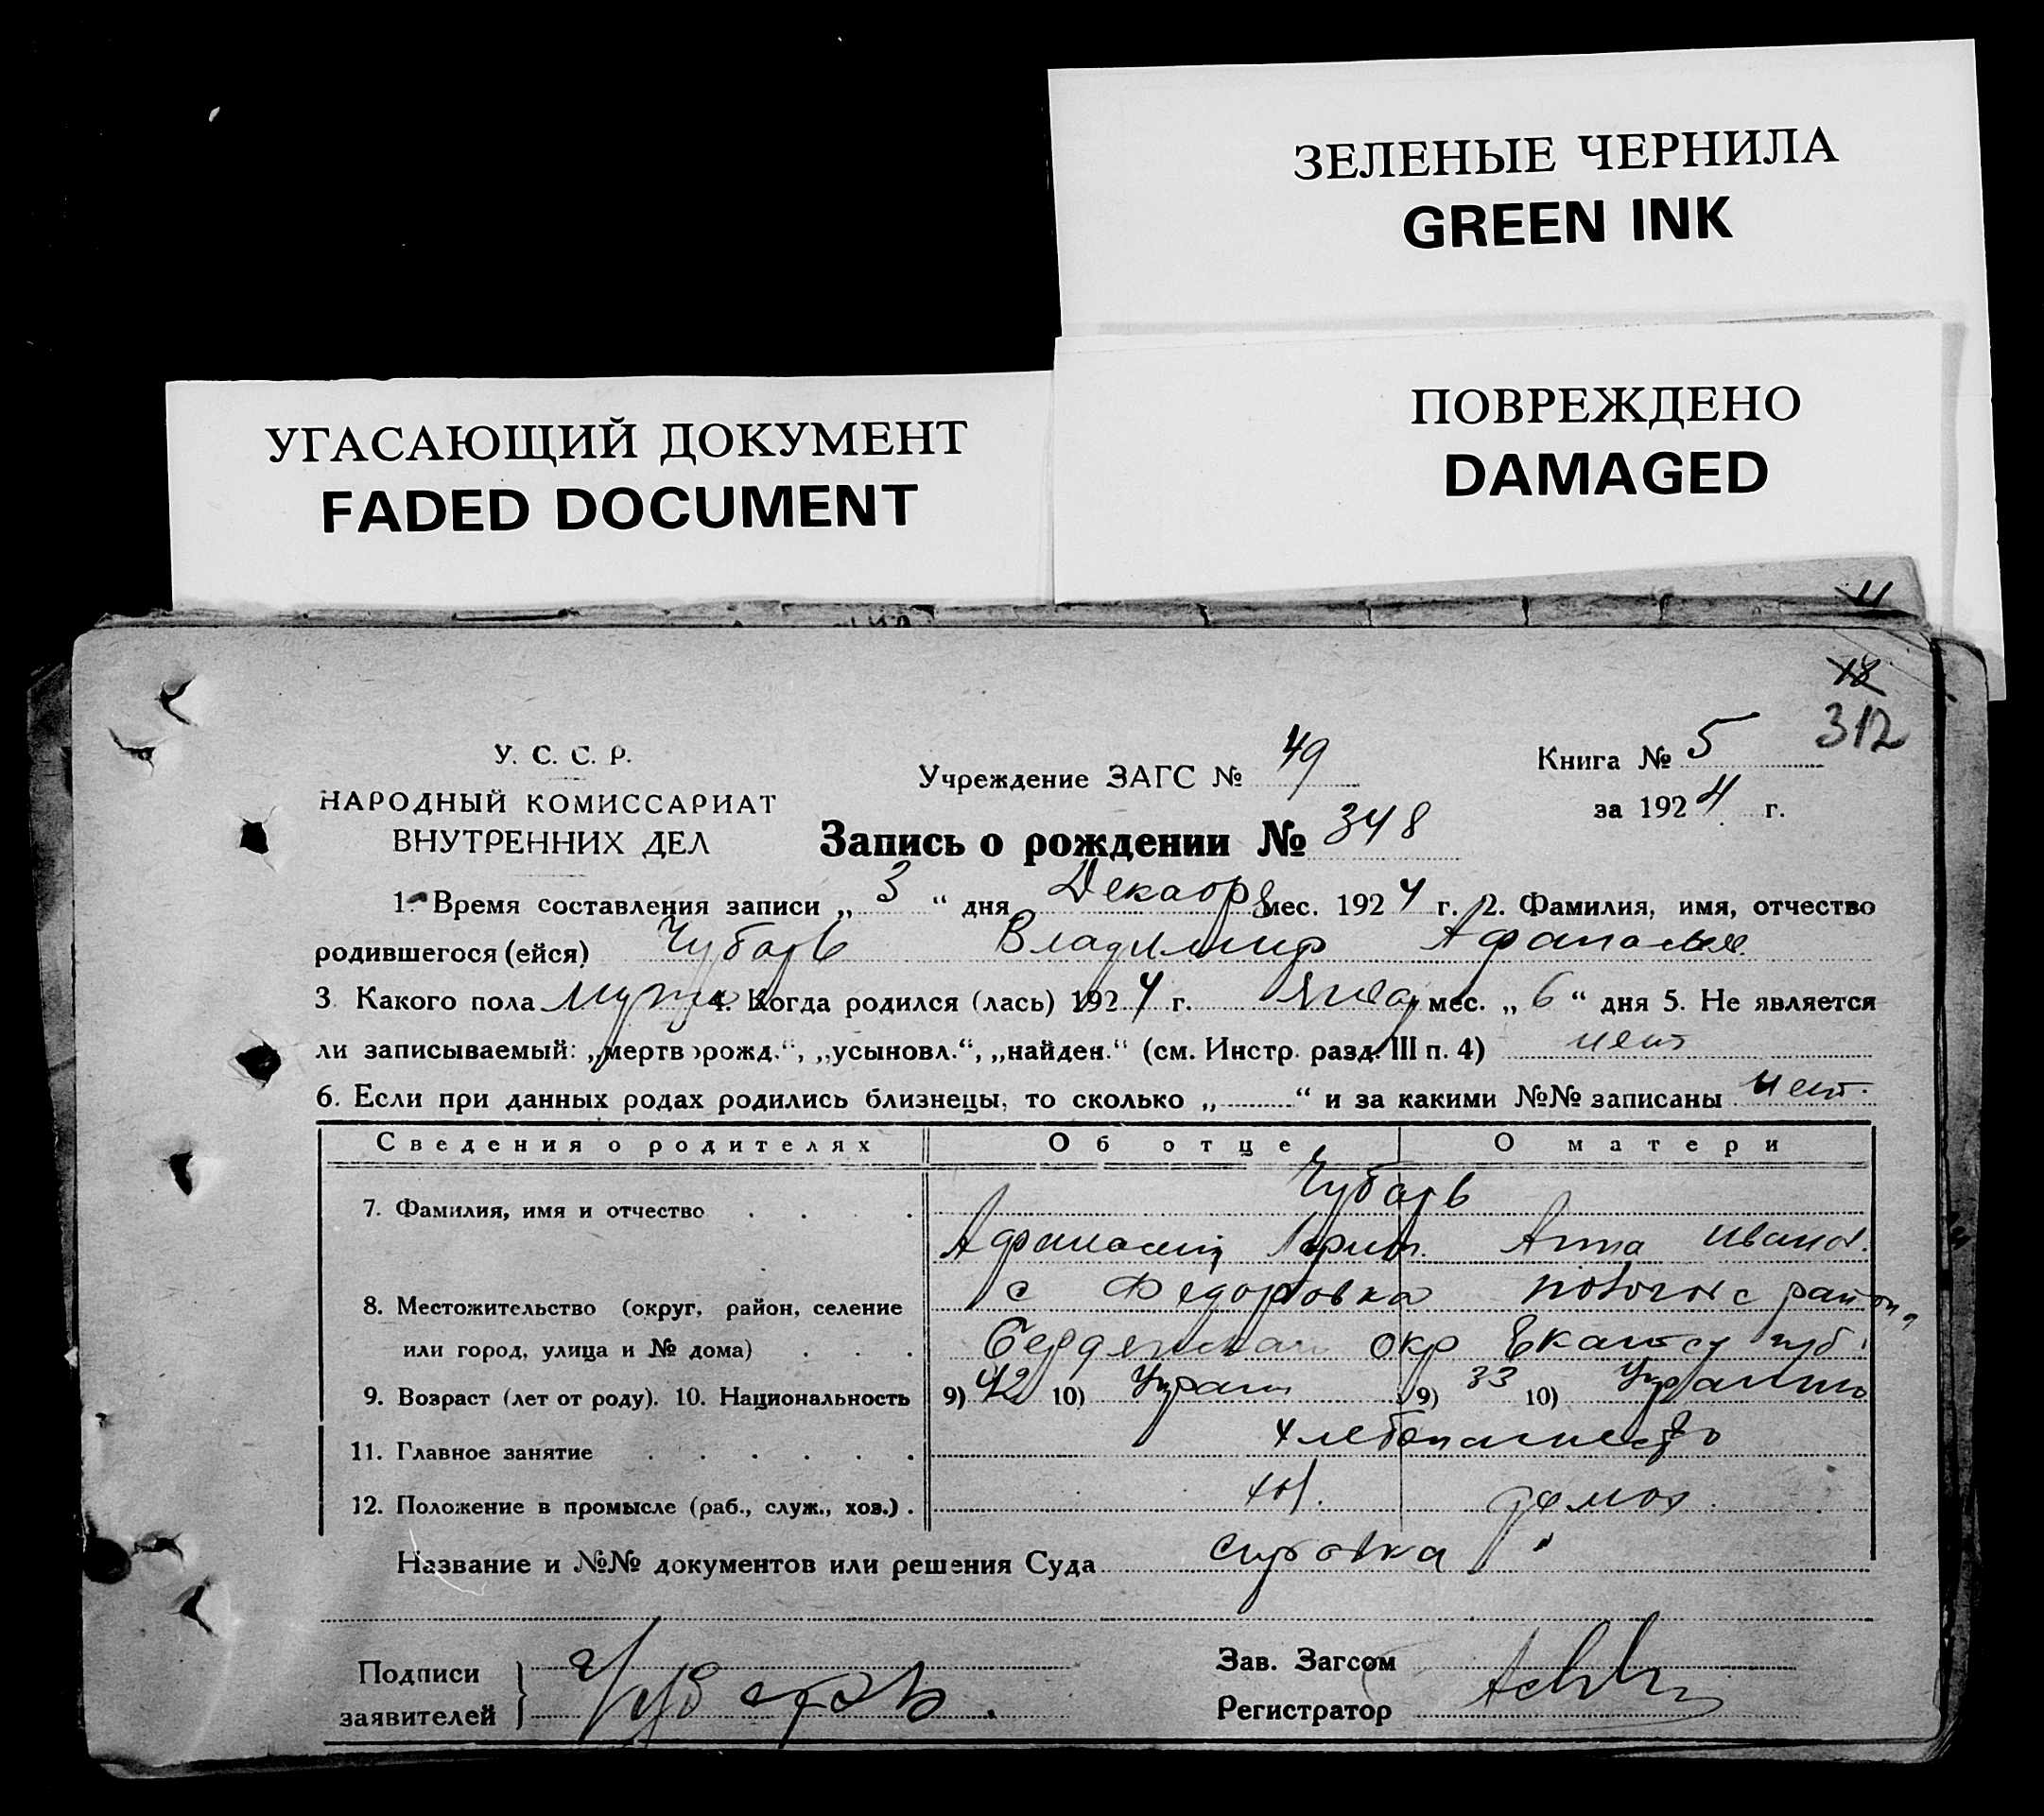 ЗЕЛЕНЫЕ ЧЕРНИЛА
GREEN INK
ПОВРЕЖДЕНО
DAMAGED
УГАСАЮЩИЙ ДОКУМЕНТ
FADED DOCUMENT
11
18
312
У. С. С. Р.
НАРОДНЫЙ КОМИССАРИАТ
ВНУТРЕННИХ ДЕЛ
Учреждение ЗАГС № 49
Книга № 5
за 1924 г.
Запись о рождении № 348
1. Время составления записи „ 3 “ дня Декабря мес. 1924 г. 2. Фамилия, имя, отчество
родившегося (ейся) Чубарь Владимир Афанасьев.
3 Какого пола муж 4. Когда родился (лась) 1924 г. Январ мес. „ 6 “ дня 5. Не является
ли записываемый: „мертворожд.“, „усыновл.“, „найден.“ (см. Инстр. разд. III п. 4) нет
6. Если при данных родах родились близнецы, то сколько „ “ и за какими №№ записаны нет.
Сведения о родителях Об отце О матери
Чубарь
7. Фамилия, имя и отчество
Афанасий Анна Иванов.
8. Местожительство (округ, район, селение с Федоровка района
или город, улица и № дома) окр Екатсл губ.
9. Возраст (лет от роду). 10. Национальность 9) 42 10) Украин 9) 33 10) Украинка
11. Главное занятие хлебопашество
12. Положение в промысле (раб., служ., хоз.) . хоз. домох.
Название и №№ документов или решения Суда справка
Подписи
заявителей
Чубарь.
Зав. Загсом
Регистратор